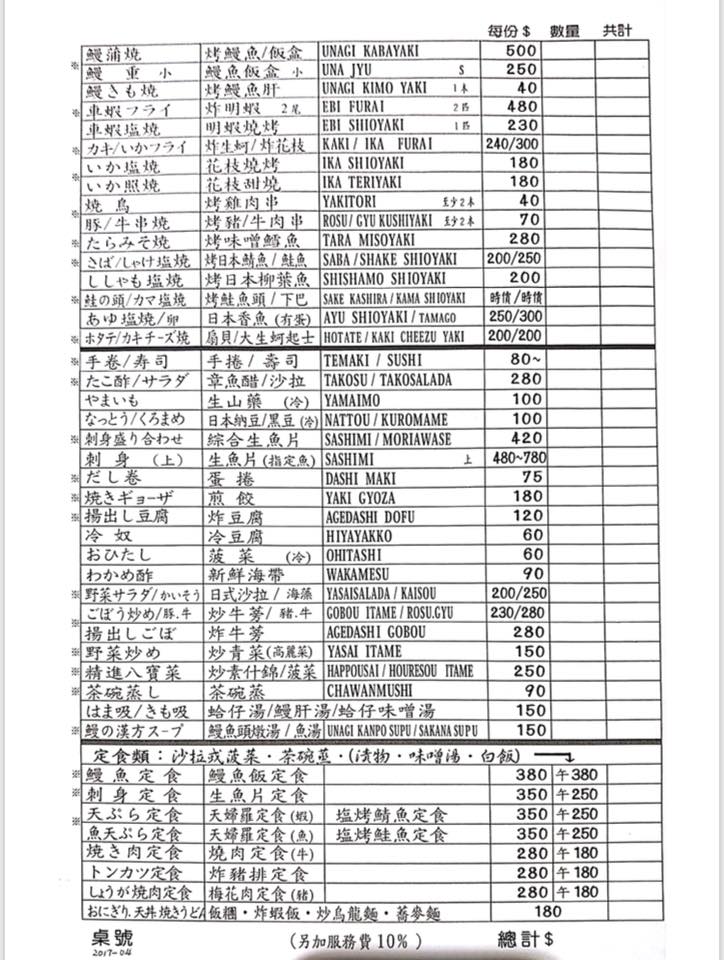 每份 $ 數量 共計
鰻蒲焼 烤鰻魚/飯盒 UNAGI KABAYAKI 500
※ 鰻重小 鰻魚飯盒 小 UNA JYU S 250
鰻きも焼 烤鰻魚肝 UNAGI KIMO YAKI 1本 40
※ 車蝦フライ 炸明蝦 2尾 EBI FURAI 2匹 480
車蝦塩焼 明蝦燒烤 EBI SHIOYAKI 1匹 230
※ カキ/いかフライ 炸生蚵/炸花枝 KAKI / IKA FURAI 240/300
いか塩焼 花枝燒烤 IKA SHIOYAKI 180
※ いか照焼 花枝甜燒 IKA TERIYAKI 180
焼鳥 烤雞肉串 YAKITORI 至少2本 40
※ 豚/牛串焼 烤豬/牛肉串 ROSU/GYU KUSHIYAKI 至少2本 70
※ たらみそ焼 烤味噌鱈魚 TARA MISOYAKI 280
※ さば/しゃけ塩焼 烤日本鯖魚/鮭魚 SABA/SHAKE SHIOYAKI 200/250
ししゃも塩焼 烤日本柳葉魚 SHISHAMO SHIOYAKI 200
※ 鮭の頭/カマ塩焼 烤鮭魚頭/下巴 SAKE KASHIRA/KAMA SHIOYAKI 時價/時價
あゆ塩焼/卵 日本香魚(有蛋) AYU SHIOYAKI/TAMAGO 250/300
※ ホタテ/カキチーズ焼 扇貝/大生蚵起士 HOTATE/KAKI CHEEZU YAKI 200/200
※ 手卷/寿司 手捲/壽司 TEMAKI / SUSHI 80~
※ たこ酢/サラダ 章魚醋/沙拉 TAKOSU / TAKOSALADA 280
やまいも 生山藥(冷) YAMAIMO 100
なっとう/くろまめ 日本納豆/黒豆(冷) NATTOU / KUROMAME 100
※ 刺身盛り合わせ 綜合生魚片 SASHIMI / MORIAWASE 420
刺身(上) 生魚片(指定魚) SASHIMI 上 480~780
※ だし巻 蛋捲 DASHI MAKI 75
※ 焼きギョーザ 煎餃 YAKI GYOZA 180
※ 揚出し豆腐 炸豆腐 AGEDASHI DOFU 120
冷奴 冷豆腐 HIYAYAKKO 60
おひたし 菠菜(冷) OHITASHI 60
わかめ酢 新鮮海帶 WAKAMESU 90
※ 野菜サラダ/かいそう 日式沙拉/海藻 YASAISALADA / KAISOU 200/250
※ ごぼう炒め/豚.牛 炒牛蒡/豬.牛 GOBOU ITAME / ROSU.GYU 230/280
揚出しごぼ 炸牛蒡 AGEDASHI GOBOU 280
※ 野菜炒め 炒青菜(高麗菜) YASAI ITAME 150
※ 精進八寶菜 炒素什錦/菠菜 HAPPOUSAI / HOURESOU ITAME 250
※ 茶碗蒸し 茶碗蒸 CHAWANMUSHI 90
はま吸/きも吸 蛤仔湯/鰻肝湯/蛤仔味噌湯 150
※ 鰻の漢方スープ 鰻魚頭燉湯/魚湯 UNAGI KANPO SUPU / SAKANA SUPU 150
定食類:沙拉或菠菜・茶碗蒸・(漬物・味噌湯・白飯)
※ 鰻魚定食 鰻魚飯定食 380 午380
※ 刺身定食 生魚片定食 350 午250
※ 天ぷら定食 天婦羅定食(蝦) 塩烤鯖魚定食 350 午250
魚天ぷら定食 天婦羅定食(魚) 塩烤鮭魚定食 350 午250
焼き肉定食 燒肉定食(牛) 280 午180
トンカツ定食 炸豬排定食 280 午180
しょうが焼肉定食 梅花肉定食(豬) 280 午180
おにぎり.天丼.焼きうどん 飯糰・炸蝦飯・炒烏龍麵・蕎麥麵 180
桌號 (另加服務費10%) 總計 $
2017-04